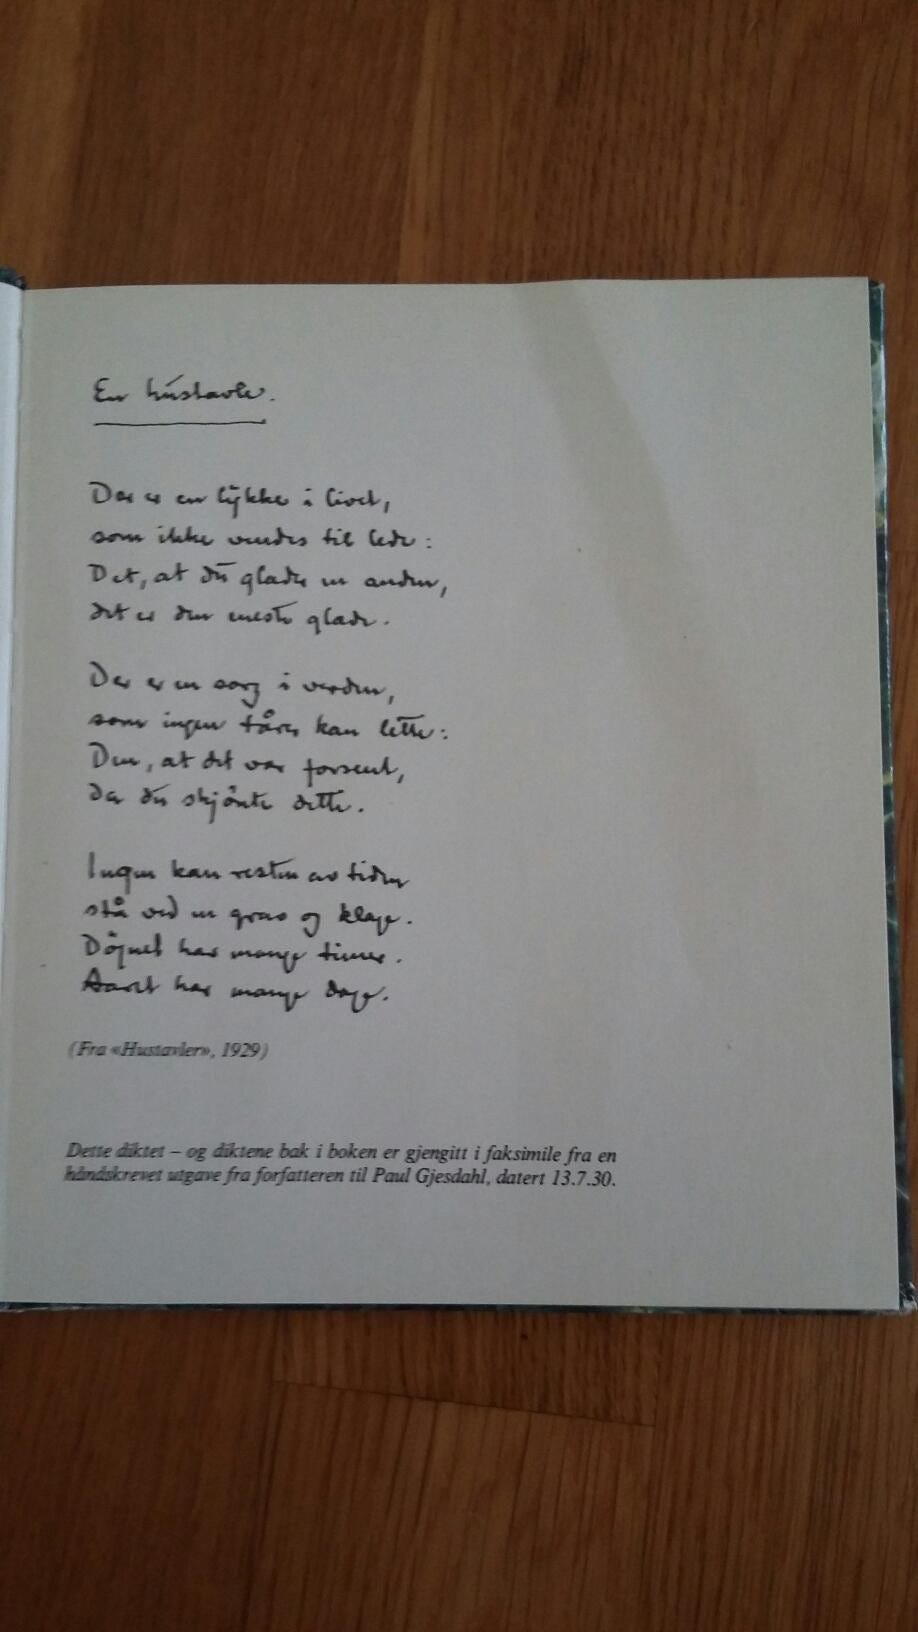 En hústavle.
Der er en lykke i livet,
som ikke vendes til lede:
Det, at dū glæder en anden,
det er den eneste glæde.
Der er en sorg i verden,
som ingen tårer kan lette:
Den, at det var forsent,
da du skjönte dette.
Ingen kan resten av tiden
stå ved en grav og klage.
Dögnet har mange timer.
Aaret har mange dage.
(Fra «Hustavler», 1929)
Dette diktet – og diktene bak i boken er gjengitt i faksimile fra en
håndskrevet utgave fra forfatteren til Paul Gjesdahl, datert 13.7.30.